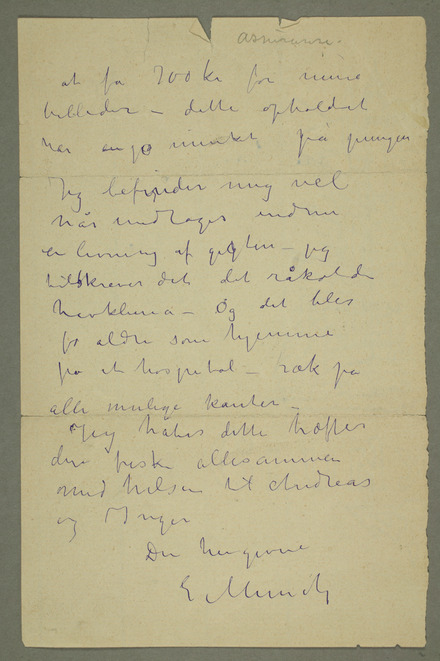 at få 700 kr for mine
billeder – dette opholdet
har også  på pungen
Jeg befinder mig vel
når undtages endnu
en levning af gigten – jeg
tilskriver det det råkolde
havklima – Og det blев
jo aldri som hjemme
på et hospital – træk på
alle mulige kanter –
Jeg håber dette træffer
dere friske allesammen
med hilsen til Andreas
og Inger
Din hengivne
E Munch